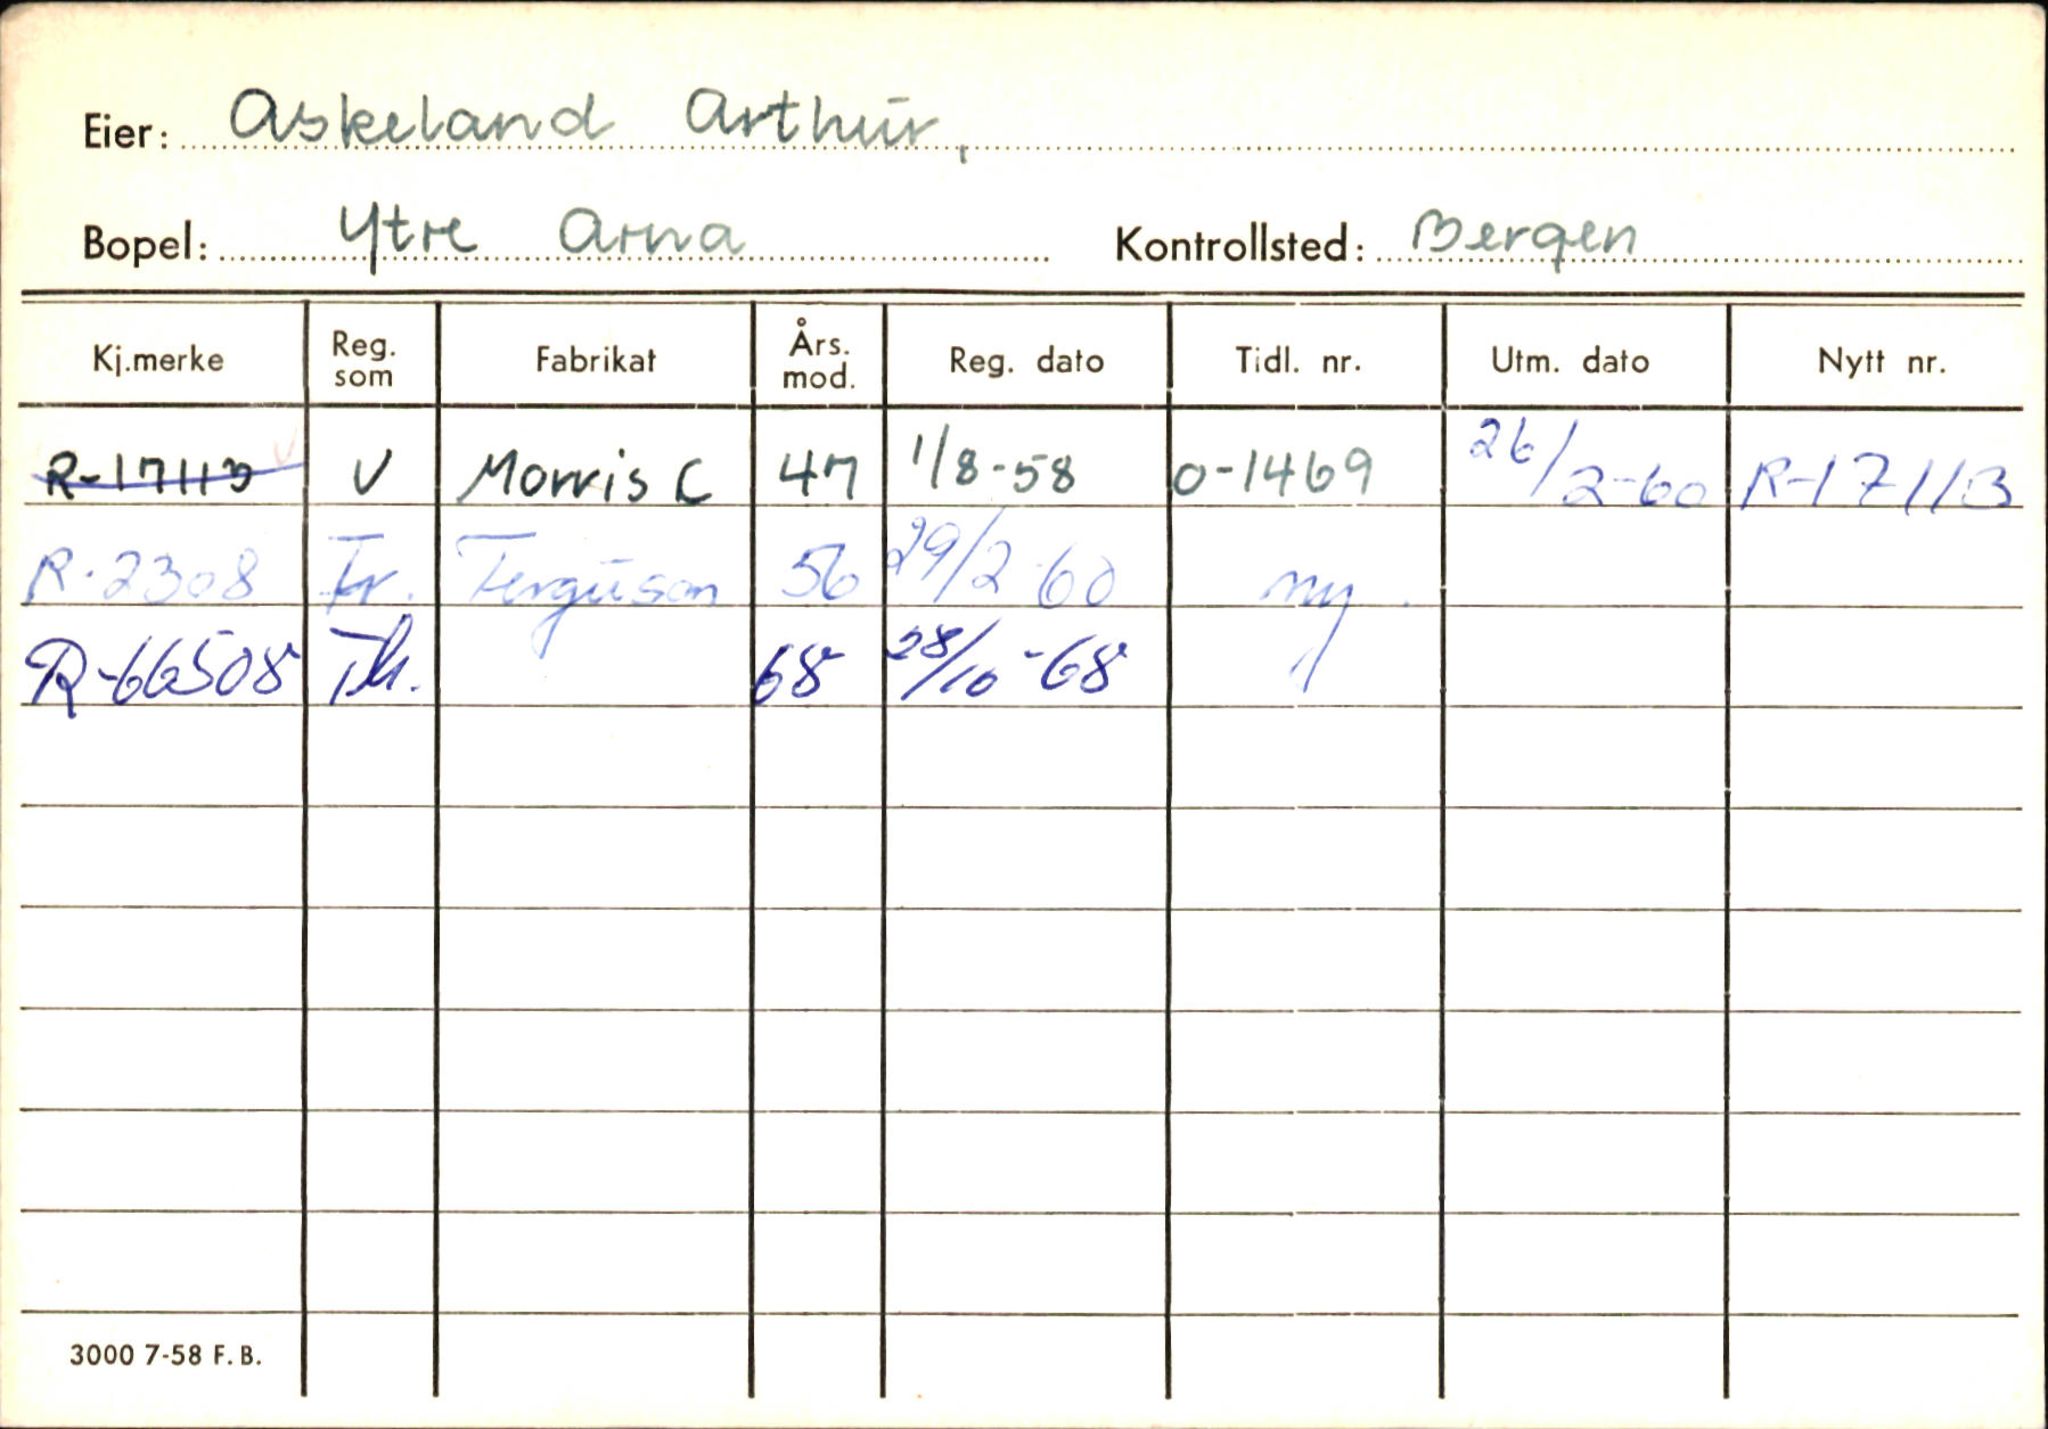 Eier: Askeland Arthur,
Bopel: Ytre Arna Kontrollsted: Bergen
Kj.merke Reg. som Fabrikat Års. mod. Reg. dato Tidl. nr. Utm. dato Nytt nr.
R-17113 V Morris C 47 1/8-58 O-1469 26/2-60 R-17113
R-2308 Tr. Ferguson 56 29/2-60 ny.
R-66508 Th. 68 28/10-68
3000 7-58 F.B.